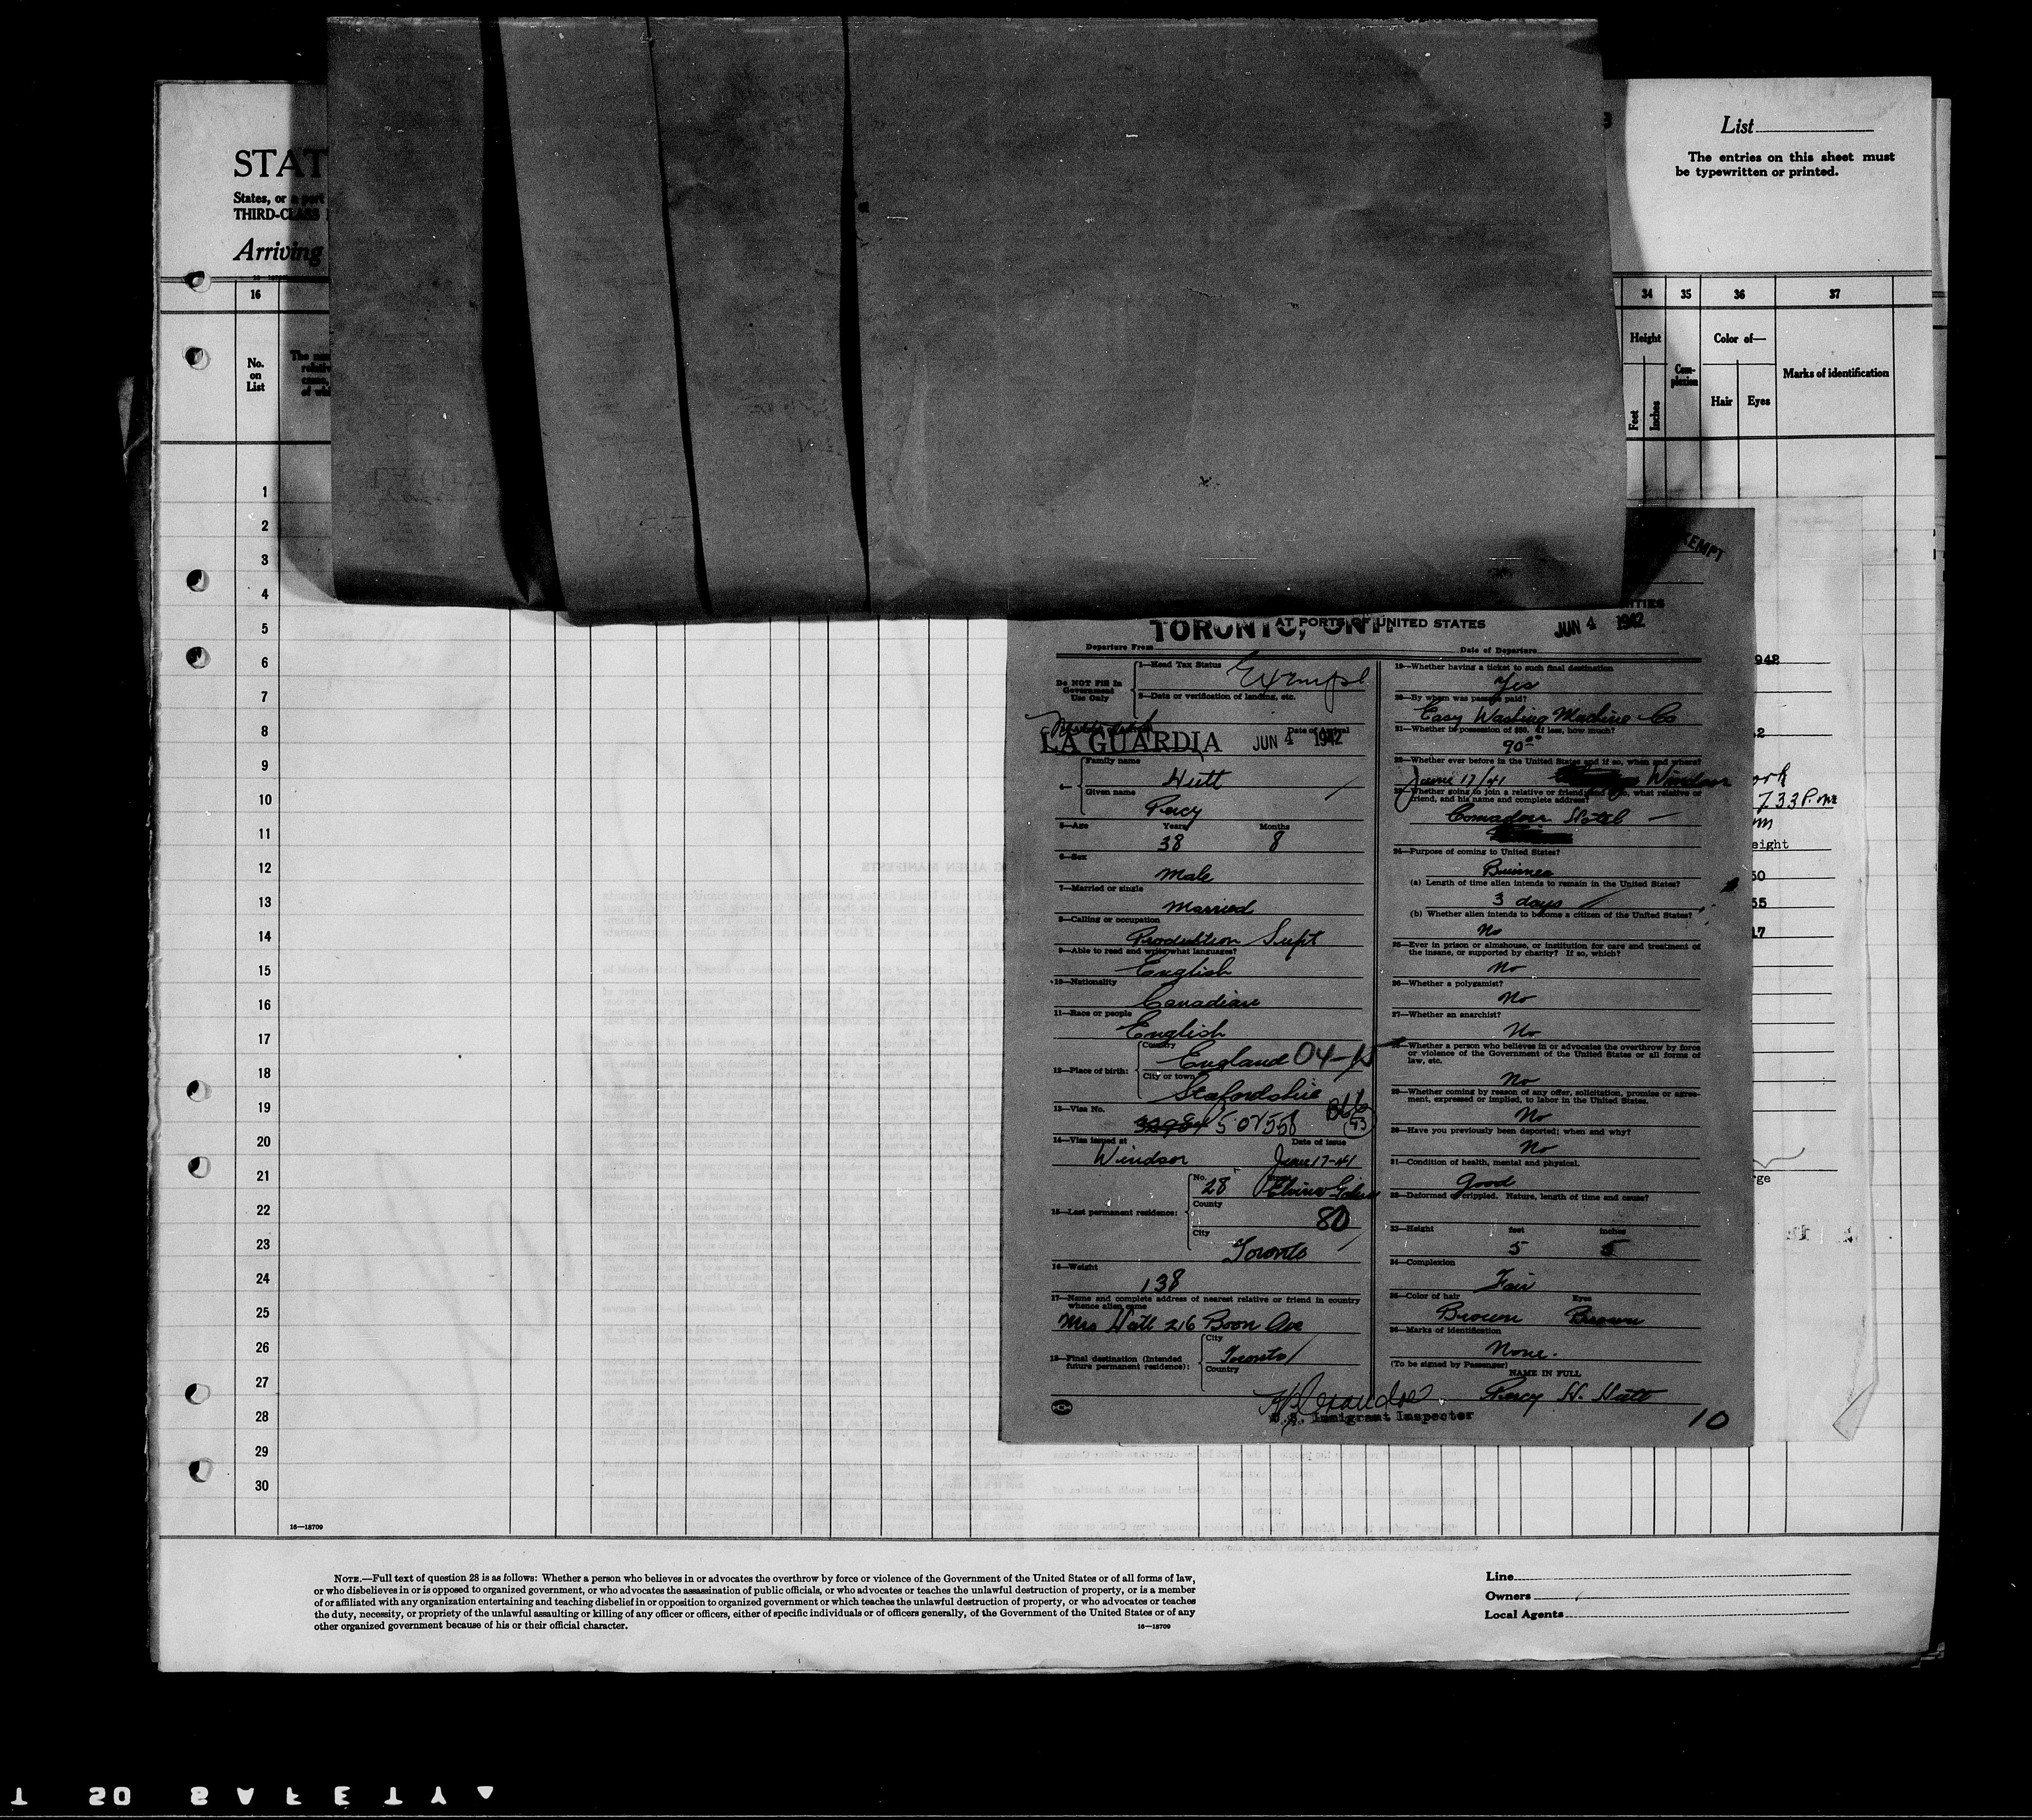 STAT
States, or a port
THIRD-CLASS
Arriving
List
The entries on this sheet must
be typewritten or printed.
16
34 35 36 37
No.
on
List
Height
Feet
Inches
Com-
plexion
Color of—
Hair Eyes
Marks of identification
1
2
3
4
5
6
7
8
9
10
11
12
13
14
15
16
17
18
19
20
21
22
23
24
25
26
27
28
29
30
16—18709
TORONTO, ONT.
AT PORTS OF UNITED STATES
JUN 4 1942
Departure From
Date of Departure
Do NOT Fill In
Government
Use Only
1—Head Tax Status
Exempt
2—Data or verification of landing, etc.
LA GUARDIA JUN 4 1942
Date of Arrival
Family name
Hutt
Given name
Percy
5—Age Years Months
38 8
6—Sex
Male
7—Married or single
Married
8—Calling or occupation
Production Supt
9—Able to read and write what languages?
English
10—Nationality
Canadian
11—Race or people
English
12—Place of birth:
Country
England 04-15
City or town
Stafordshire
13—Visa No.
507558
14—Visa issued at Date of issue
Windsor June 17-41
15—Last permanent residence:
No.
28
County
80
City
Toronto
16—Weight
138
17—Name and complete address of nearest relative or friend in country
whence alien came
Mrs Hutt 216 Boon Ave
18—Final destination (Intended
future permanent residence):
City
Toronto
Country
U.S. Immigrant Inspector
19—Whether having a ticket to such final destination
Yes
20—By whom was passage paid?
Easy Washing Machine Co
21—Whether in possession of $50, if less, how much?
90.00
22—Whether ever before in the United States and if so, when and where?
June 17/41 Windsor
23—Whether going to join a relative or friend and if so, what relative or
friend, and his name and complete address?
Comadore Hotel
24—Purpose of coming to United States?
Business
(a) Length of time alien intends to remain in the United States?
3 days
(b) Whether alien intends to become a citizen of the United States?
No
25—Ever in prison or almshouse, or institution for care and treatment of
the insane, or supported by charity? If so, which?
No
26—Whether a polygamist?
No
27—Whether an anarchist?
No
28—Whether a person who believes in or advocates the overthrow by force
or violence of the Government of the United States or all forms of
law, etc.
No
29—Whether coming by reason of any offer, solicitation, promise or agree-
ment, expressed or implied, to labor in the United States.
No
30—Have you previously been deported; when and why?
No
31—Condition of health, mental and physical.
Good
32—Deformed or crippled. Nature, length of time and cause?
33—Height feet inches
5 5
34—Complexion
Fair
35—Color of hair Eyes
Brown Brown
36—Marks of identification
None.
(To be signed by Passenger)
NAME IN FULL
Percy H. Hutt
10
NOTE.—Full text of question 28 is as follows: Whether a person who believes in or advocates the overthrow by force or violence of the Government of the United States or of all forms of law,
or who disbelieves in or is opposed to organized government, or who advocates the assassination of public officials, or who advocates or teaches the unlawful destruction of property, or is a member
of or affiliated with any organization entertaining and teaching disbelief in or opposition to organized government or which teaches the unlawful destruction of property, or who advocates or teaches
the duty, necessity, or propriety of the unlawful assaulting or killing of any officer or officers, either of specific individuals or of officers generally, of the Government of the United States or of any
other organized government because of his or their official character.
16—18709
Line
Owners
Local Agents
SAFETY